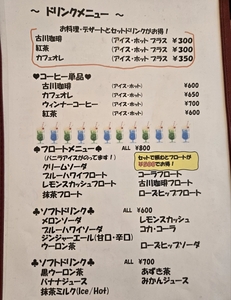 ～ ドリンクメニュー ～
お料理・デザートとセットドリンクがお得！
古川珈琲 (アイス・ホット プラス ¥300
紅茶 (アイス・ホット プラス ¥300
カフェオレ (アイス・ホット プラス ¥350
♥コーヒー単品♥
古川珈琲 (アイス・ホット) ¥600
カフェオレ (アイス・ホット) ¥650
ウィンナーコーヒー (アイス・ホット) ¥700
紅茶 (アイス・ホット) ¥600
♣フロートメニュー♣ ALL ¥800
(バニラアイスがのってます！)
セットで頼むとフロートが
お得！
クリームソーダ
ブルーハワイフロート コーラフロート
レモンスカッシュフロート 古川珈琲フロート
抹茶フロート ローズヒップフロート
♣ソフトドリンク♣ ALL ¥600
メロンソーダ レモンスカッシュ
ブルーハワイソーダ コカ・コーラ
ジンジャーエール(甘口・辛口)
ウーロン茶 ローズヒップソーダ
♣ソフトドリンク♣ ALL ¥700
黒ウーロン茶 あずき茶
バナナジュース みかんジュース
抹茶ミルク(Ice/Hot)